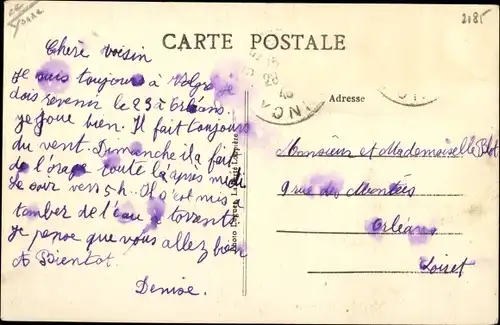 2185
CARTE POSTALE
Adresse
Chère voisin
Je suis toujours à
dois revenir le 23 à Orléans
je joue bien. Il fait toujours
du vent. Dimanche il a fait
de l'orage toute l'après midi
Le soir vers 5h. Il s'est mis a
tomber de l'eau a torrents
Je pense que vous allez bien
A Bientot.
Denise.
Monsieur et Mademoiselle Blot
9 rue des Montées
Orléans
Loiret